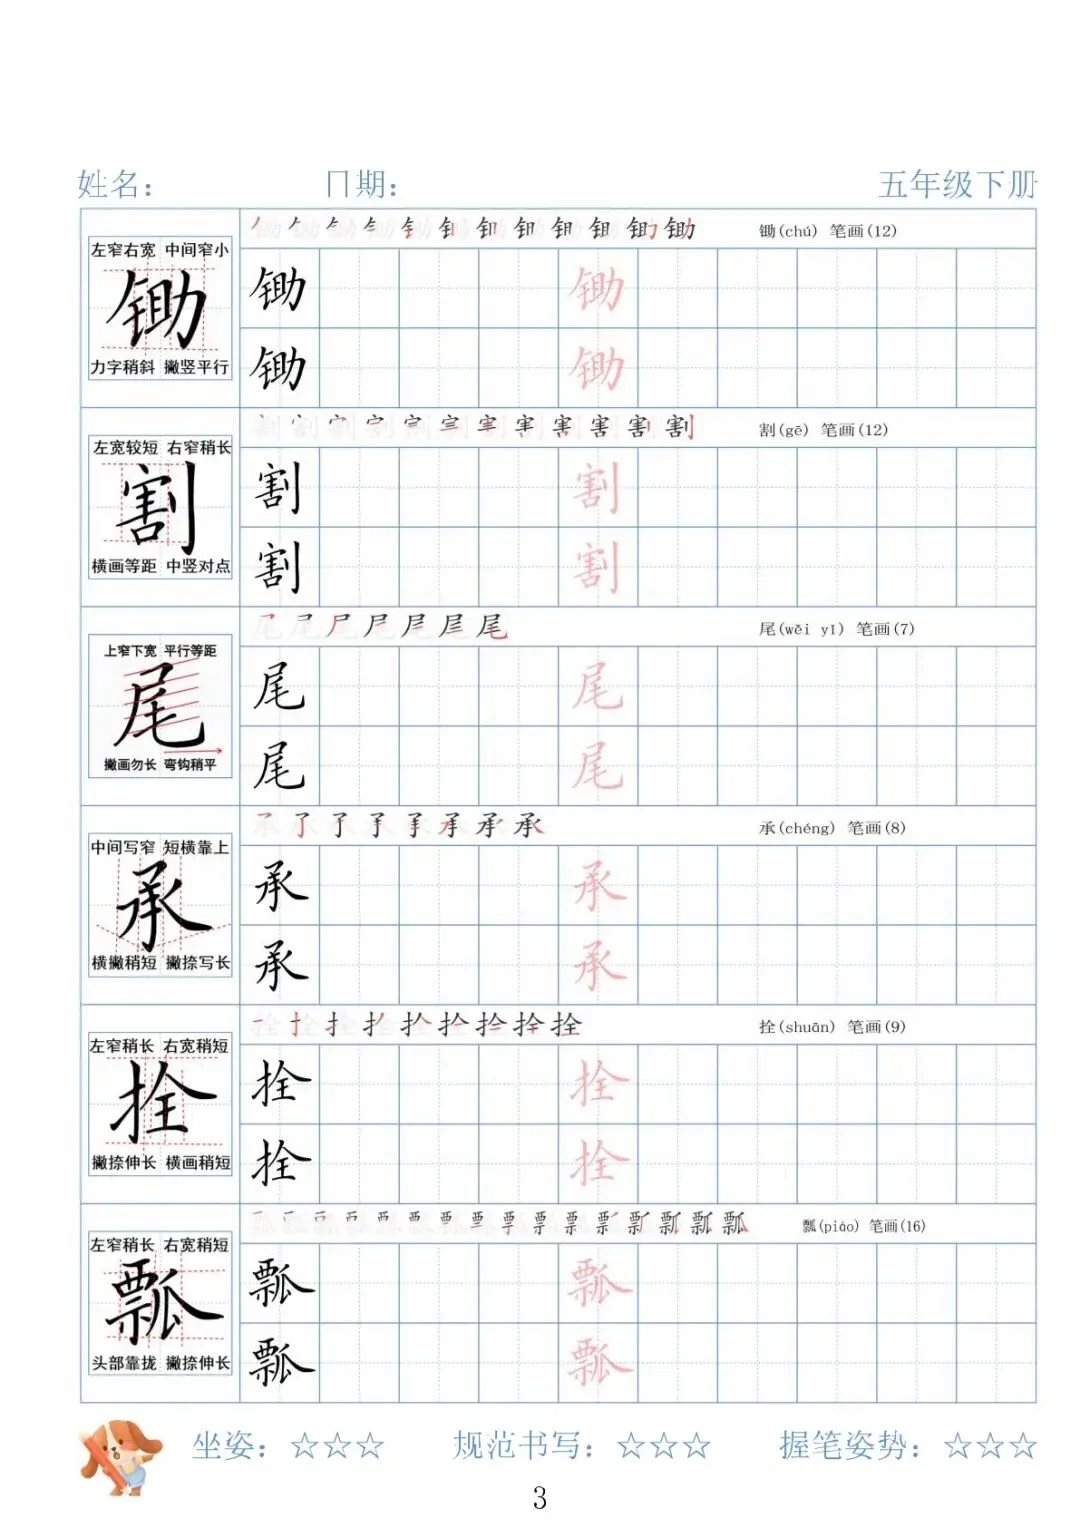 姓名： 日期： 五年级下册
左窄右宽 中间窄小
锄
力字稍斜 撇竖平行
锄(chú) 笔画(12)
锄 锄
锄 锄
左宽较短 右窄稍长
割
横画等距 中竖对点
割(gē) 笔画(12)
割 割
割 割
上窄下宽 平行等距
尾
撇画勿长 弯钩稍平
尾(wěi yǐ) 笔画(7)
尾 尾
尾 尾
中间写窄 短横靠上
承
横撇稍短 撇捺写长
承(chéng) 笔画(8)
承 承
承 承
左窄稍长 右宽稍短
拴
撇捺伸长 横画稍短
拴(shuān) 笔画(9)
拴 拴
拴 拴
左窄稍长 右宽稍短
瓢
头部靠拢 撇捺伸长
瓢(piáo) 笔画(16)
瓢 瓢
瓢 瓢
坐姿：☆☆☆ 规范书写：☆☆☆ 握笔姿势：☆☆☆
3